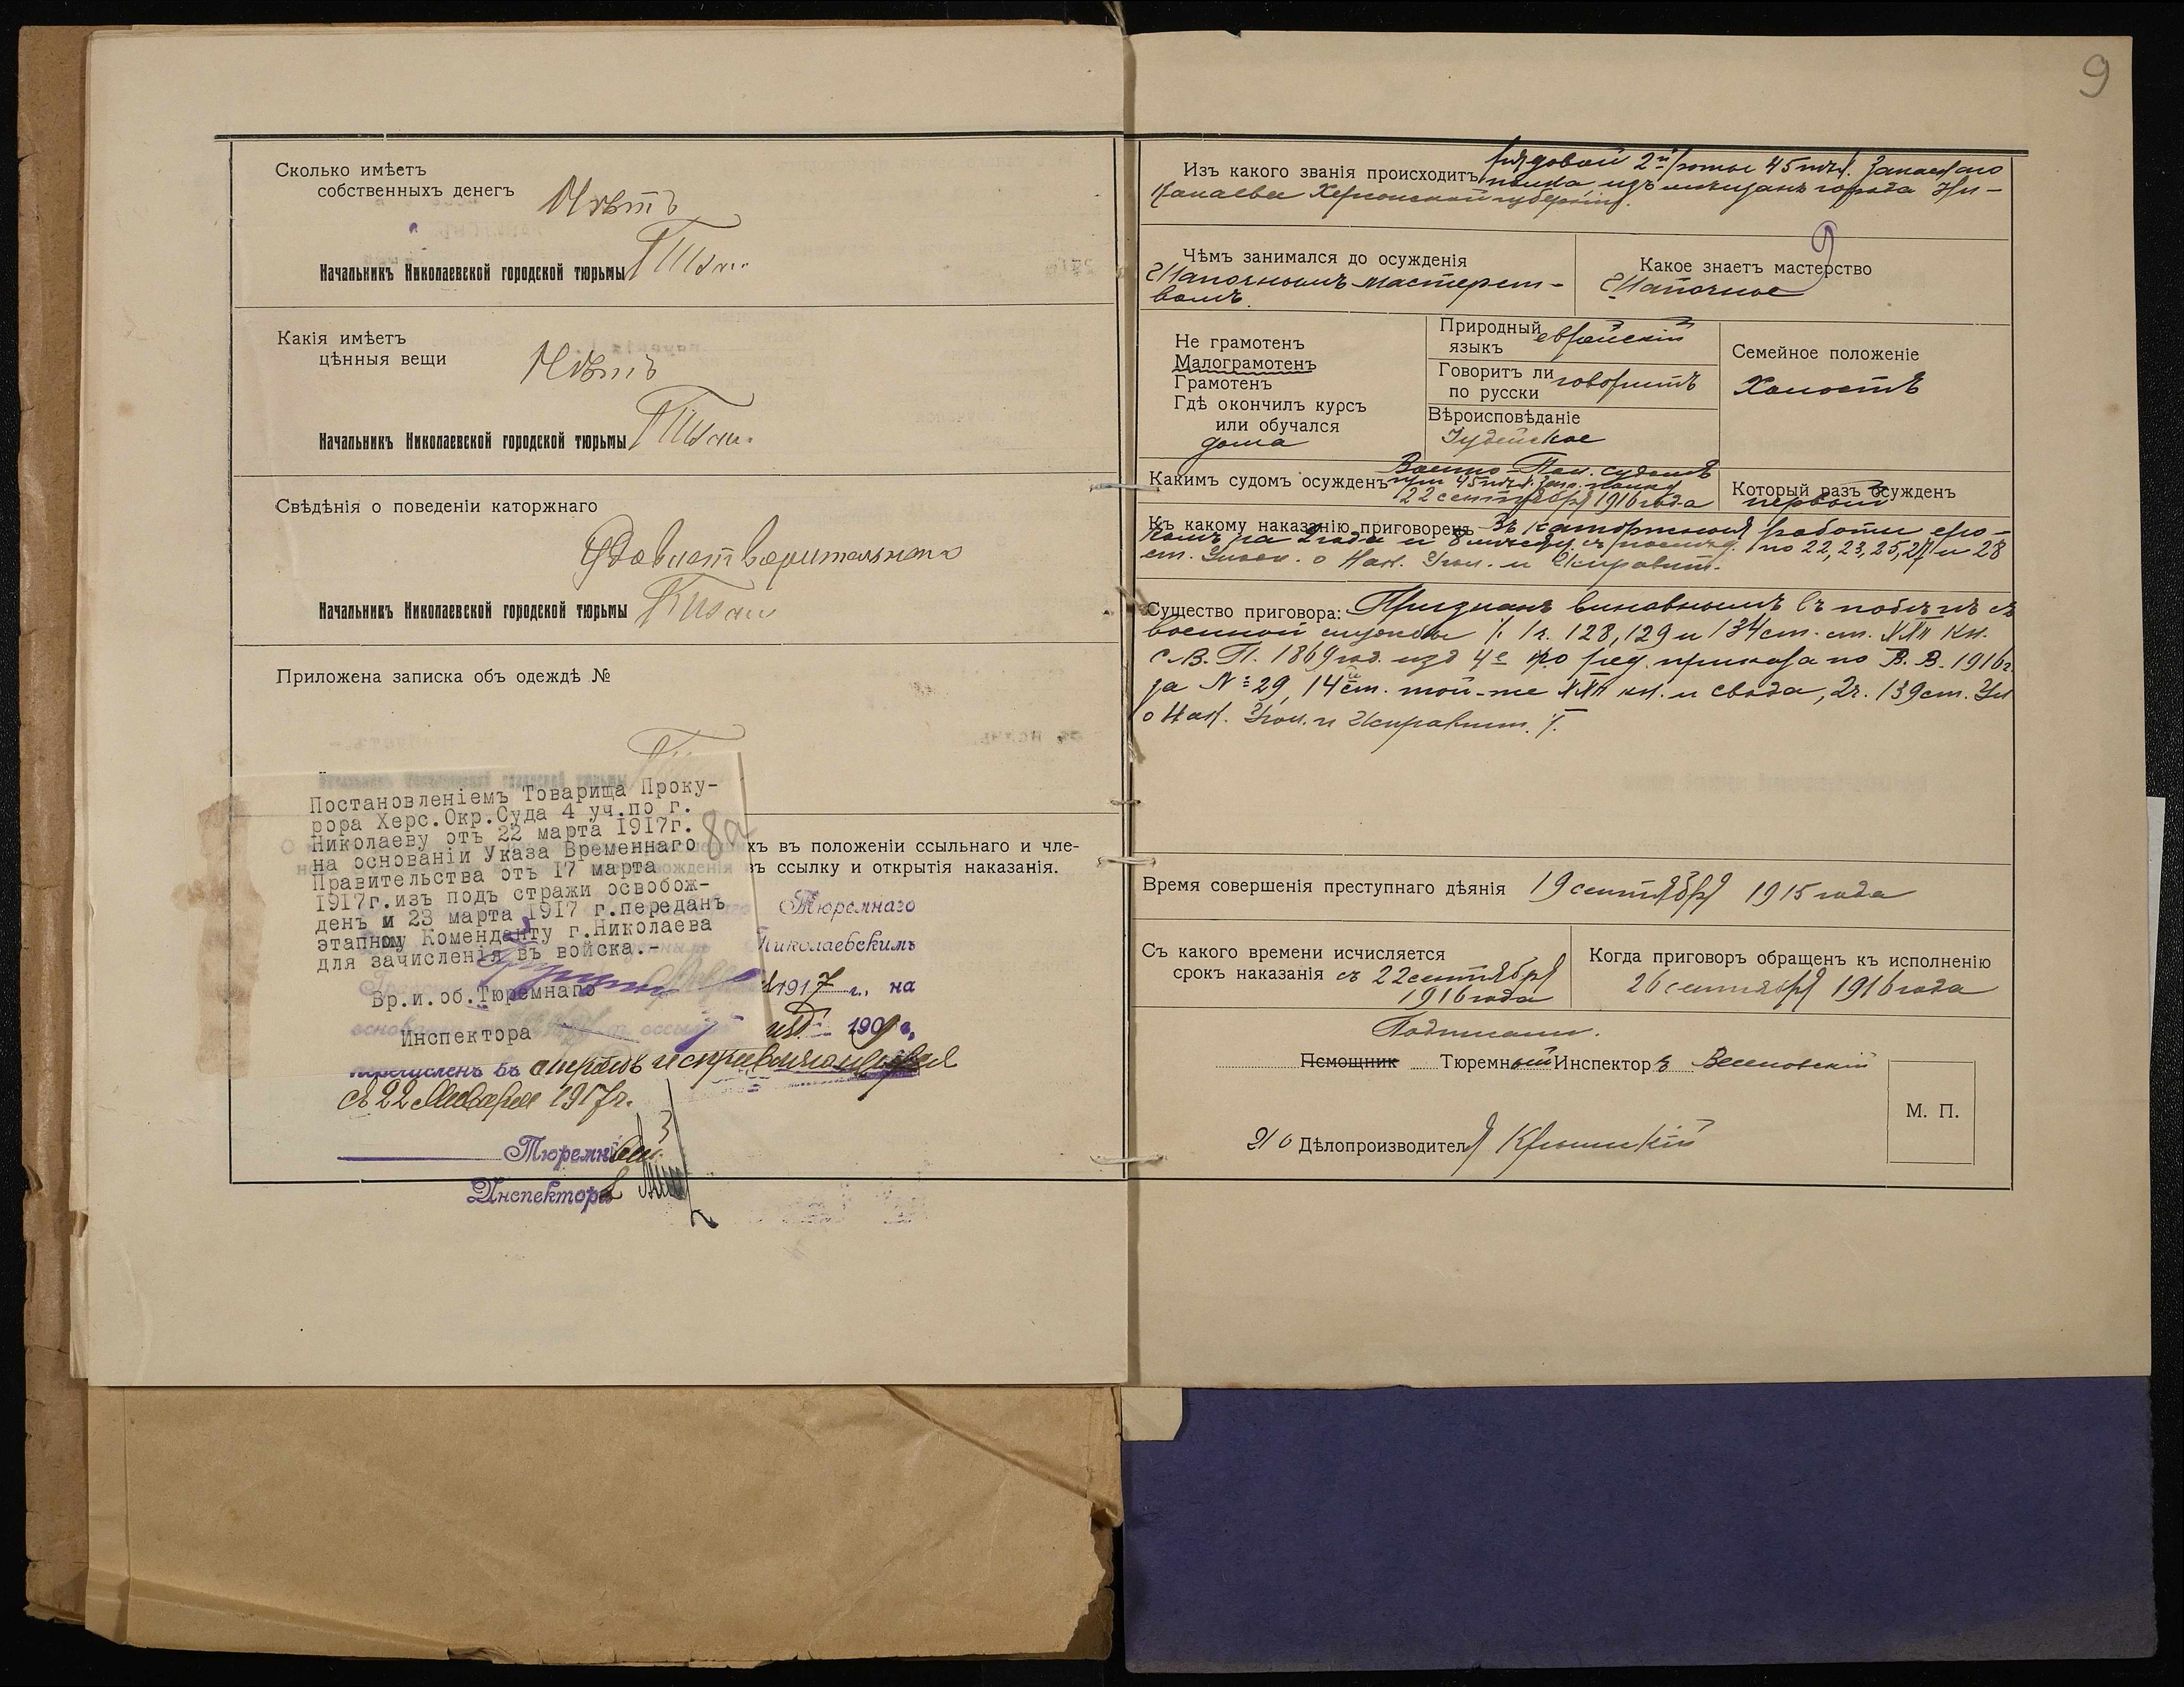 Сколько имѣетъ
собственныхъ денегъ
Нѣтъ
Начальникъ Николаевской городской тюрьмы
Какія имѣетъ
цѣнныя вещи
Нѣтъ
Начальникъ Николаевской городской тюрьмы
Свѣдѣнія о поведеніи каторжнаго
Удовлетворительнаго
Начальникъ Николаевской городской тюрьмы
Приложена записка объ одеждѣ №
Постановленіемъ Товарища Проку-
рора Херс.Окр.Суда 4 уч.по г.
Николаеву отъ 22 марта 1917г.
на основаніи Указа Временнаго
Правительства отъ 17 марта
1917г.изъ подъ стражи освобож-
денъ и 23 марта 1917 г.переданъ
этапному Коменданту г.Николаева
для зачисленія въ войска.-
Вр.и.об.Тюремнаго
Инспектора
8а
хъ въ положеніи ссыльнаго и чле-
въ ссылку и открытія наказанія.
Тюремнаго
Николаевскимъ
1917 г., на
190 г.
перечисленъ въ отрядъ исправляющихся
съ 22 Января 1917г.
Тюремный
Инспекторъ
9
Изъ какого званія происходитъ рядовой 2й роты 45 пѣх. Запаснаго
полка, изъ мѣщанъ города Ни-
колаева Херсонской губерніи.
Чѣмъ занимался до осужденія
Шапочнымъ мастерст-
вомъ.
Какое знаетъ мастерство
Шапочное
Не грамотенъ
Малограмотенъ
Грамотенъ
Гдѣ окончилъ курсъ
или обучался
дома
Природный
языкъ еврейскій
Говоритъ ли
по русски говоритъ
Вѣроисповѣданіе
Іудейское
Семейное положеніе
Холостъ
Какимъ судомъ осужденъ Военно-Пол. судомъ
при 45 пѣх. Зап. полку
22 сентября 1916 года
Который разъ осужденъ
первый
Къ какому наказанію приговоренъ Въ каторжныя работы сро-
комъ на 2 года и 8 мѣсяц. съ послѣд. по 22, 23, 25, 27 и 28
ст. Улож. о Нак. Угол. и Исправит.
Существо приговора: Признанъ виновнымъ въ побѣгѣ съ
военной службы /. 1ч. 128, 129 и 134 ст. ст. XXII кн.
С.В.П. 1869 год. изд 4е по ред. приказа по В. В. 1916г.
за № 29, 14 ст. той-же XXII кн. и свода, 2ч. 139 ст. Ул
о Нак. Угол. и Исправит. /.
Время совершенія преступнаго дѣянія 19 сентября 1915 года
Съ какого времени исчисляется
срокъ наказанія съ 22 сентября
1916 года
Когда приговоръ обращенъ къ исполненію
26 сентября 1916 года
Подписали.
Помощник Тюремный Инспекторъ
И о Дѣлопроизводителя
М. П.